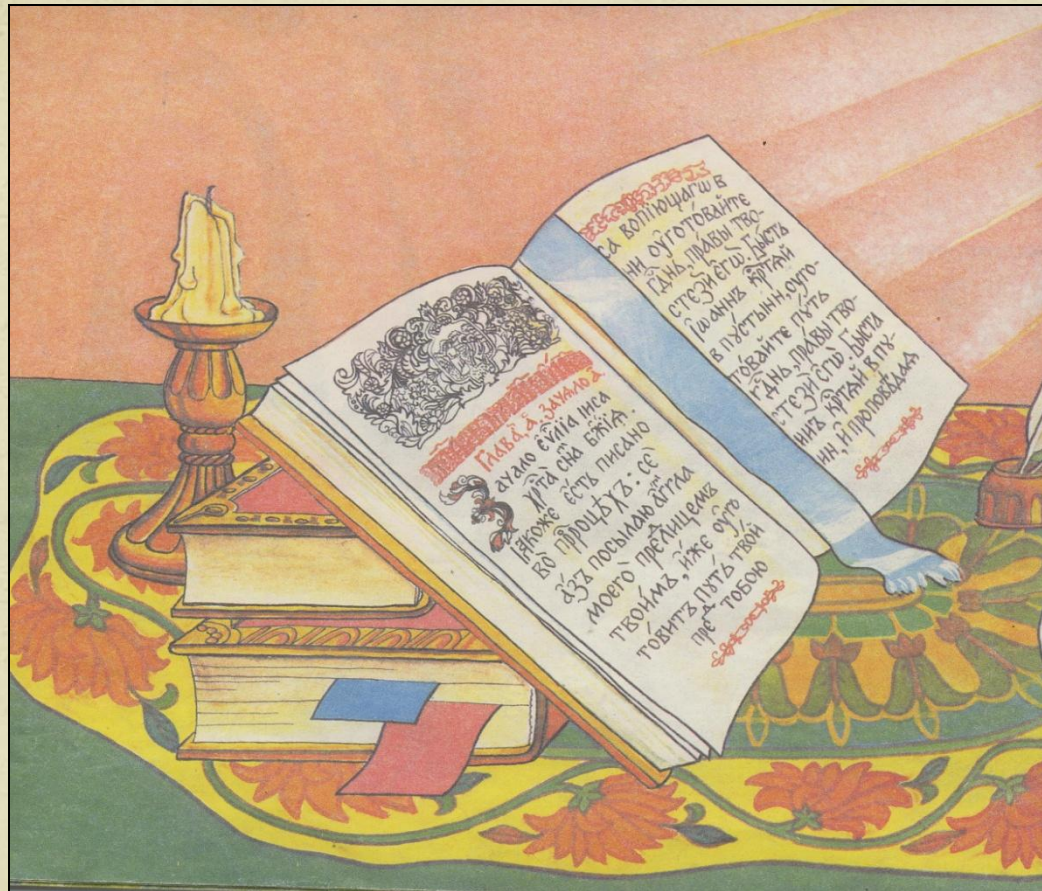 Глава̀, а҃. зачало а҃
Зачало є҆ѵⷢ҇лїѧ і҆и҃са
хрⷭ҇та̀ сн҃а бж҃їѧ.
Ꙗкоже є҆́сть писано
во прⷪ҇роцѣхъ: сѐ
а҆́зъ посылаю а҆́гг҃ла
моего̀ преⷣ лицемъ
твои́мъ, и҆́же оу҆го
то́витъ пꙋ́ть тво́й
преⷣ тобо́ю
са вопїющагѡ в
ни оу҆гото́вайте
гдⷭ҇нь, пра́вы тво-
стези̑ є҆гѡ̀. Бы́сть
Їѡаннъ крⷭ҇тѧ́й
в пꙋсты́ни, оуго-
това́йте пꙋ́ть
гдⷭ҇нь, пра́вы тво-
стези̑ є҆гѡ̀. Бы́сть
ннъ крⷭ҇тѧ́й в пꙋ-
нн, и҆ проповѣдаѧ